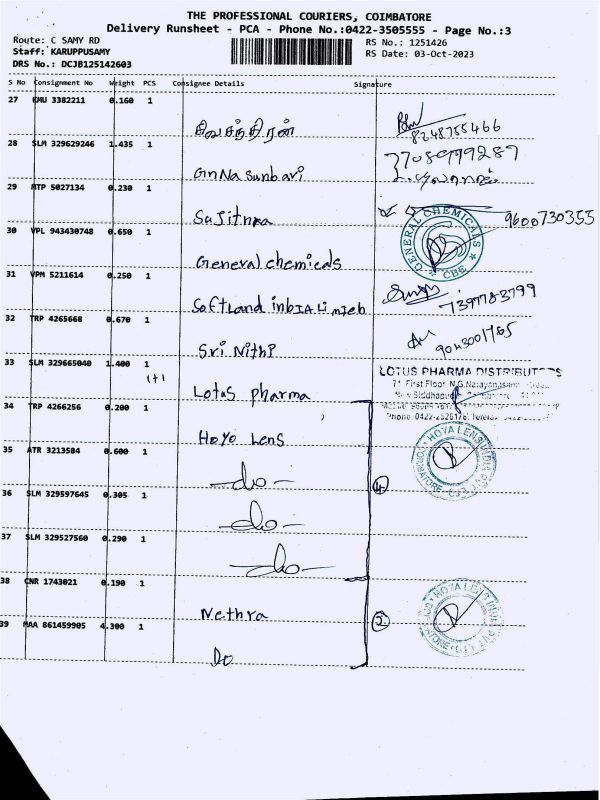 THE PROFESSIONAL COURIERS, COIMBATORE
Delivery Runsheet - PCA - Phone No.:0422-3505555 - Page No.:3
Route: C SAMY RD
RS No.: 1251426
Staff: KARUPPUSAMY
RS Date: 03-Oct-2023
DRS No.: DCJB125142603
S No Consignment No Weight PCS Consignee Details Signature
27 KMU 3382211 0.160 1
சிவசந்திரன்
8248755466
28 SLM 329629246 1.435 1
GnNasunbari
29 MTP 5027134 0.230 1
Sajitnra
9600730355
30 VPL 943430748 0.650 1
General chemicals
GENERAL CHEMICALS
CBE
31 VPM 5211614 0.250 1
Softland inbIA Limteb
7397783799
32 TRP 4265668 0.670 1
Sri Nithi
9043001765
33 SLM 329665040 1.400 1
1+1
Lotus pharma
LOTUS PHARMA DISTRIBUTORS
71 First Floor N.G.Narayanasami
New Siddhapudur
34 TRP 4266256 0.200 1
Hoyo Lens
35 ATR 3213504 0.600 1
-do-
HOYA LENS INDIA PVT LTD
COIMBATORE
4.
36 SLM 329597645 0.305 1
-do-
37 SLM 329527560 0.290 1
-do-
38 CNR 1743021 0.190 1
Nethra
2.
HOYA LENS INDIA PVT LTD
COIMBATORE
39 MAA 861459905 4.300 1
Do